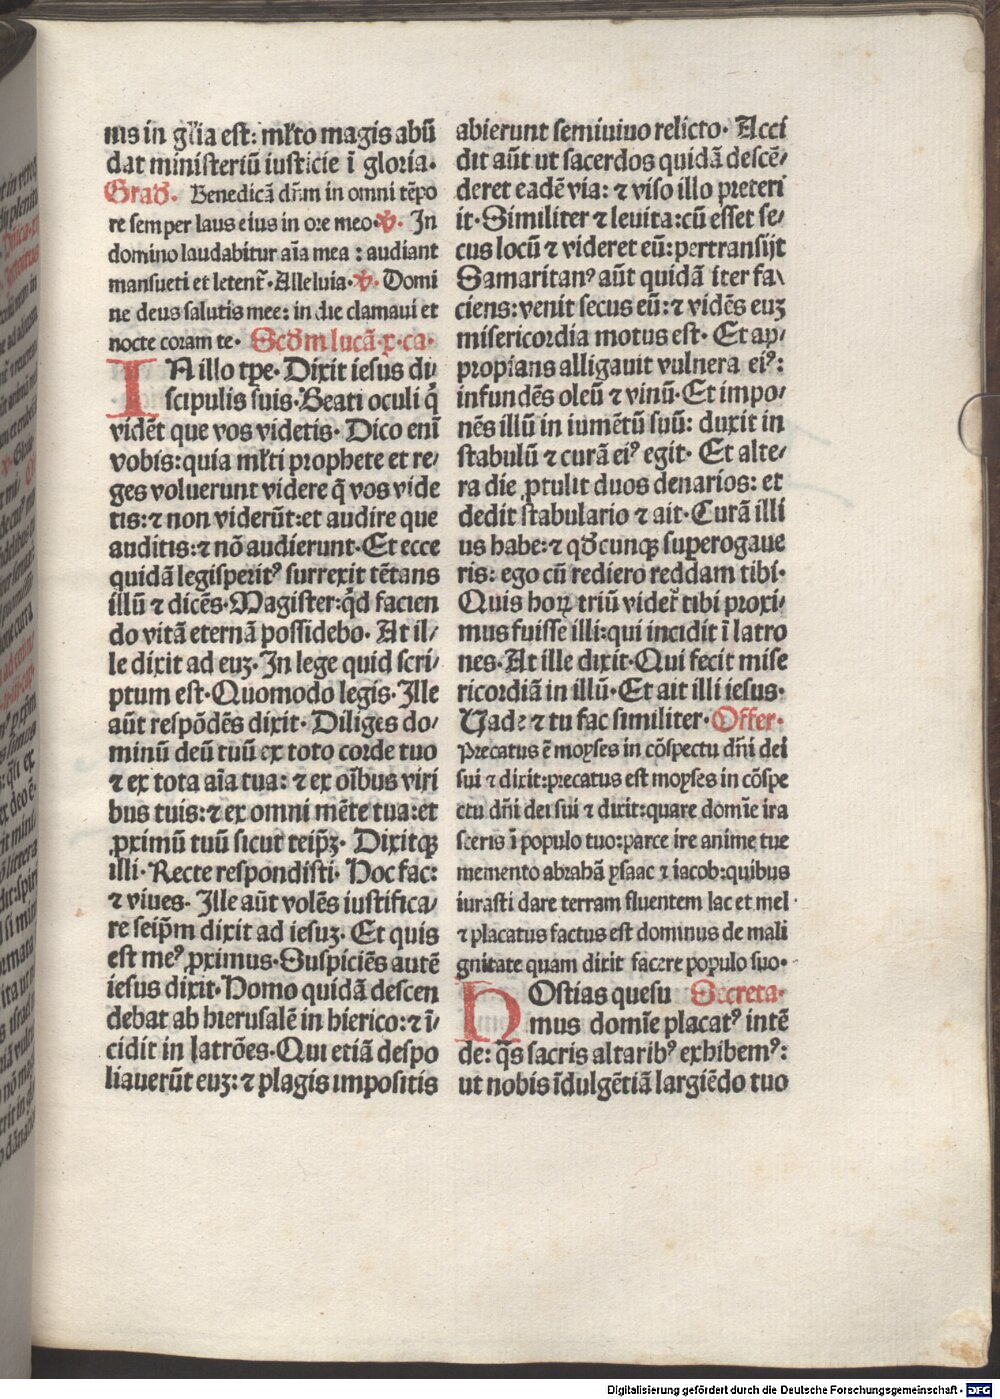 nis in gl̄ia est: ml̄to magis abū
dat ministeriū iusticie ī gloria.
Grad̄. Benedicā dn̄m in omni tēpo
re semper laus eius in ore meo. ℣. In
domino laudabitur aīa mea : audiant
mansueti et letent̄. Alleluia. ℣. Domi
ne deus salutis mee: in die clamaui et
nocte coram te. Scd̄m lucā. x. ca.
IN illo tp̄e. Dixit iesus di/
scipulis suis. Beati oculi q̄
vidēt que vos videtis. Dico enī
vobis: quia ml̄ti prophete et re/
ges voluerunt videre q̄ vos vide
tis: ⁊ non viderūt: et audire que
auditis: ⁊ nō audierunt. Et ecce
quidā legisperitꝰ surrexit tētans
illū ⁊ dicēs. Magister: qd̄ facien
do vitā eternā possidebo. At il/
le dixit ad euꝫ. In lege quid scri/
ptum est. Quomodo legis. Ille
aūt respōdēs dixit. Diliges do/
minū deū tuū ex toto corde tuo
⁊ ex tota aīa tua: ⁊ ex oībus viri
bus tuis: ⁊ ex omni mēte tua: et
ꝓximū tuū sicut teip̄ꝫ. Dixitqꝫ
illi. Recte respondisti. Hoc fac:
⁊ viues. Ille aūt volēs iustifica/
re seip̄m dixit ad iesuꝫ. Et quis
est meꝰ ꝓximus. Suspiciēs autē
iesus dixit. Homo quidā descen
debat ab hierusalē in hierico: ⁊ ī/
cidit in latrōes. Qui etiā despo
liauerūt euꝫ: ⁊ plagis impositis
abierunt semiuiuo relicto. Acci
dit aūt ut sacerdos quidā descē/
deret eadē via: ⁊ viso illo preteri
it. Similiter ⁊ leuita: cū esset se/
cus locū ⁊ videret eū: pertransijt
Samaritanꝰ aūt quidā iter fa\
ciens: venit secus eū: ⁊ vidēs euꝫ
misericordia motus est. Et ap/
propians alligauit vulnera eiꝰ:
infundēs oleū ⁊ vinū. Et impo/
nēs illū in iumētū suū: duxit in
stabulū ⁊ curā eiꝰ egit. Et alte/
ra die ꝓtulit duos denarios: et
dedit stabulario ⁊ ait. Curā illi
us habe: ⁊ qd̄cunqꝫ superogaue
ris: ego cū rediero reddam tibi.
Quis hoꝝ triū videt̄ tibi proxi/
mus fuisse illi: qui incidit ī latro
nes. At ille dixit. Qui fecit mise
ricordiā in illū. Et ait illi iesus.
Vade ⁊ tu fac similiter. Offer.
Precatus ē moyses in cōspectu dn̄i dei
sui ⁊ dixit: precatus est moyses in cōspe
ctu dn̄i dei sui ⁊ dixit: quare domīe ira
sceris ī populo tuo: parce ire anime tue
memento abrahā ysaac ⁊ iacob: quibus
iurasti dare terram fluentem lac et mel
⁊ placatus factus est dominus de mali
gnitate quam dixit facere populo suo.
HOstias quesu Secreta.
mus domīe placatꝰ intē
de: qs̄ sacris altaribꝰ exhibemꝰ:
ut nobis īdulgētiā largiēdo tuo
Digitalisierung gefördert durch die Deutsche Forschungsgemeinschaft - DFG